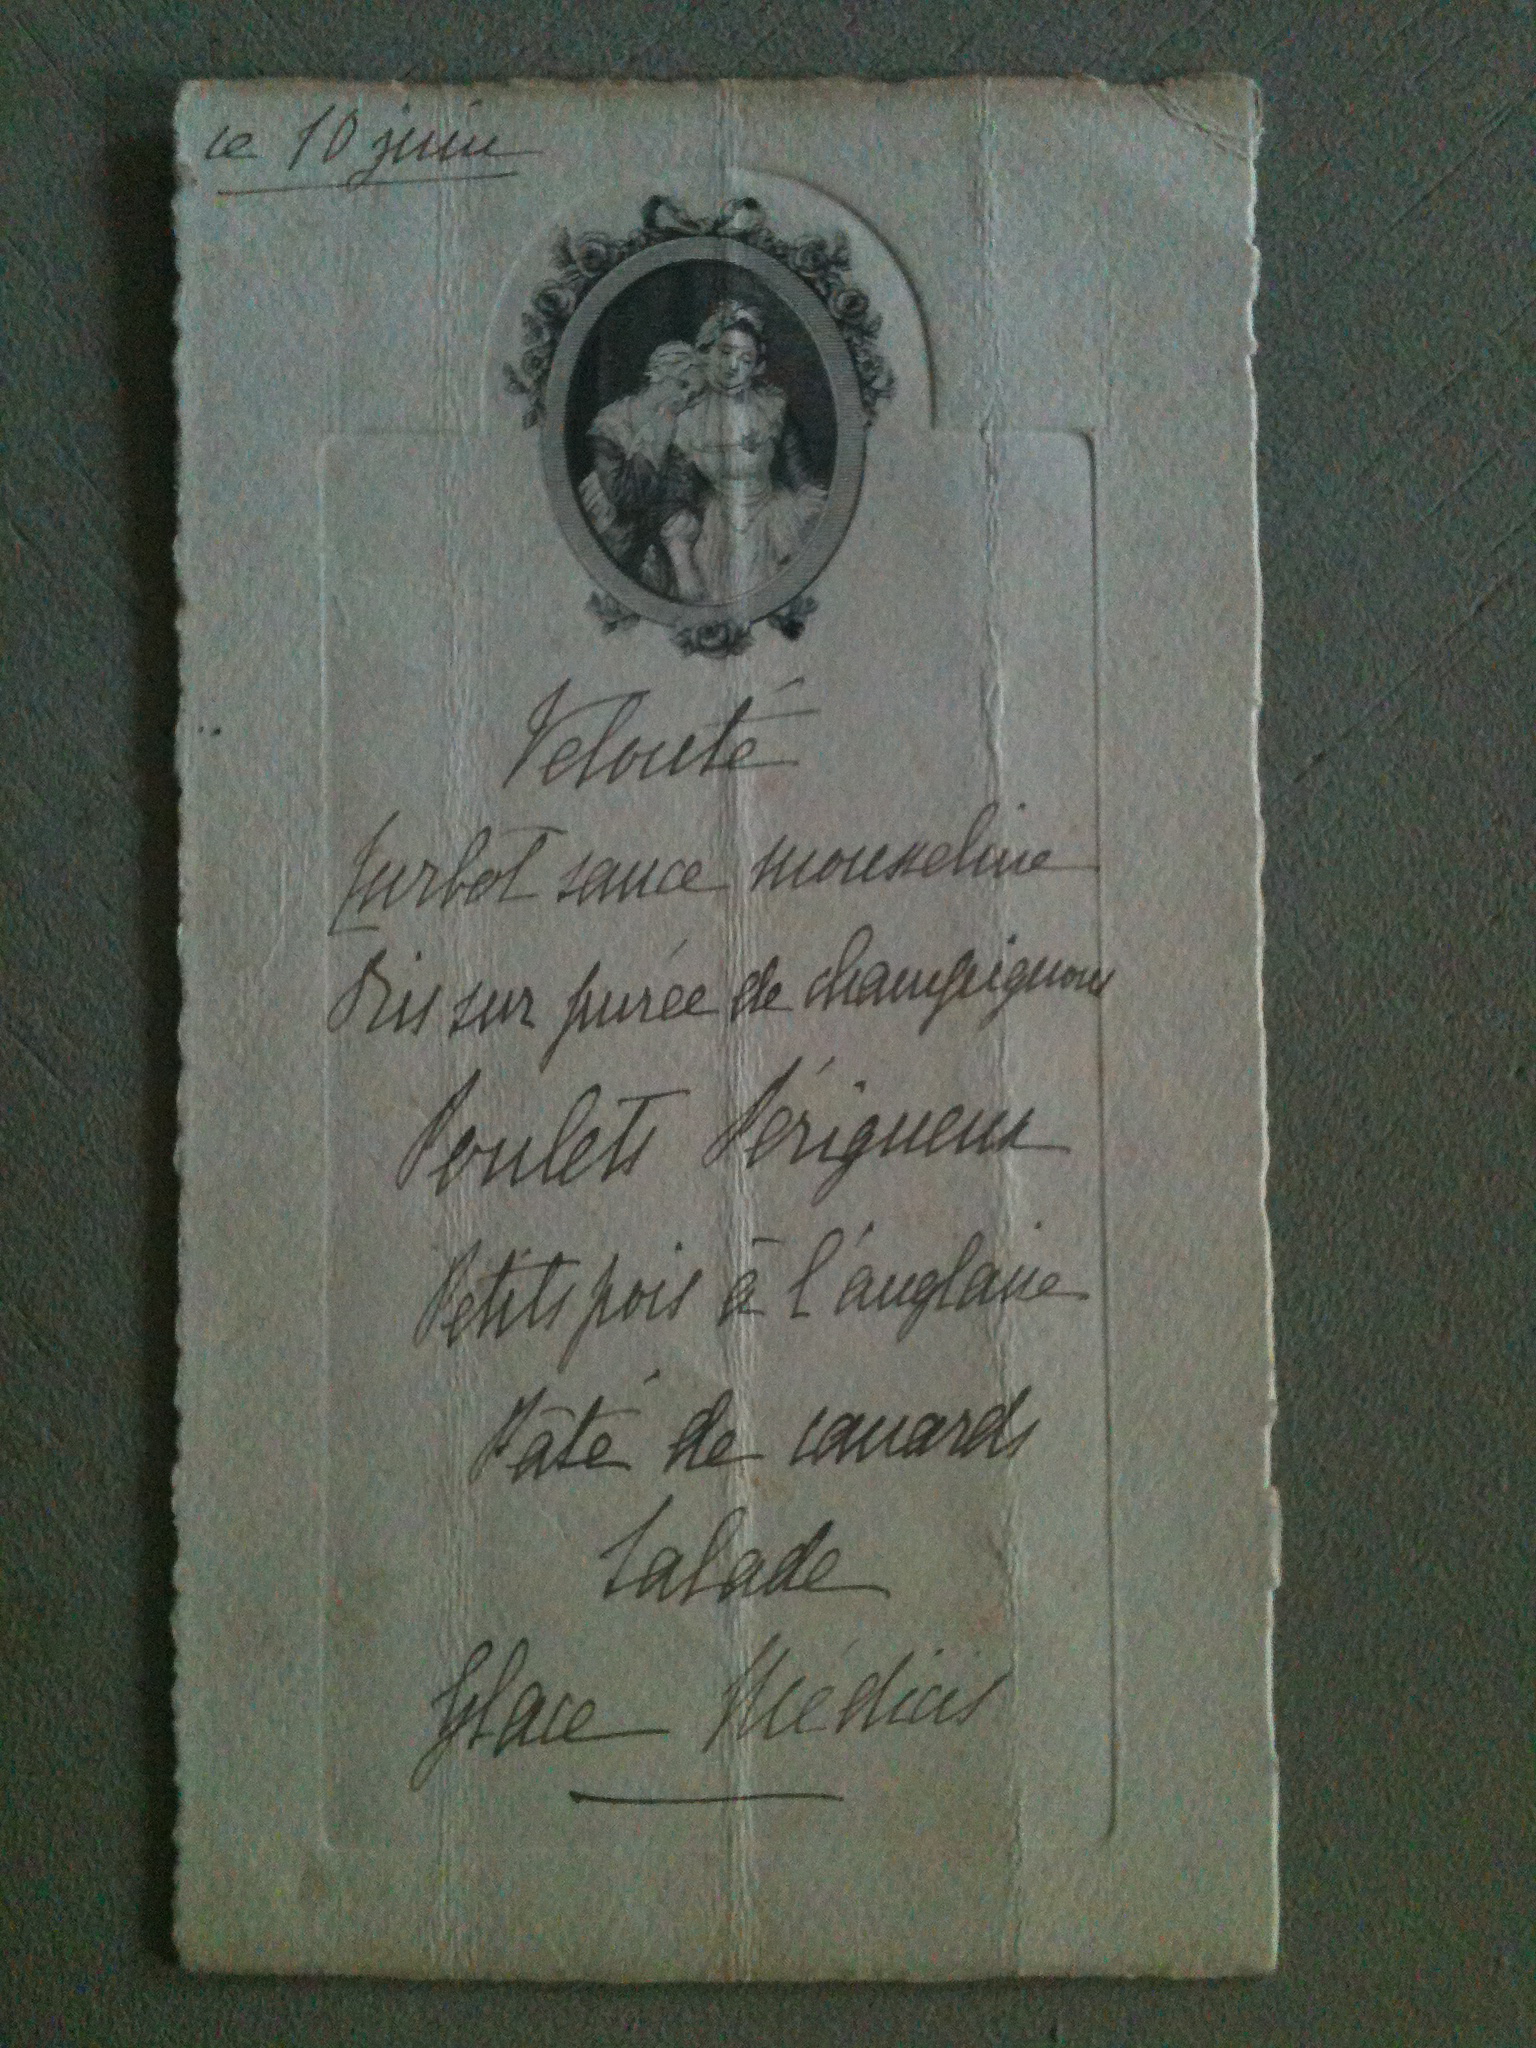 ce 10 juin
Velouté
Turbot sauce mousseline
Ris sur purée de champignons
Poulets Périgueux
Petits pois à l'anglaise
Pâté de canards
Salade
Glace Médicis